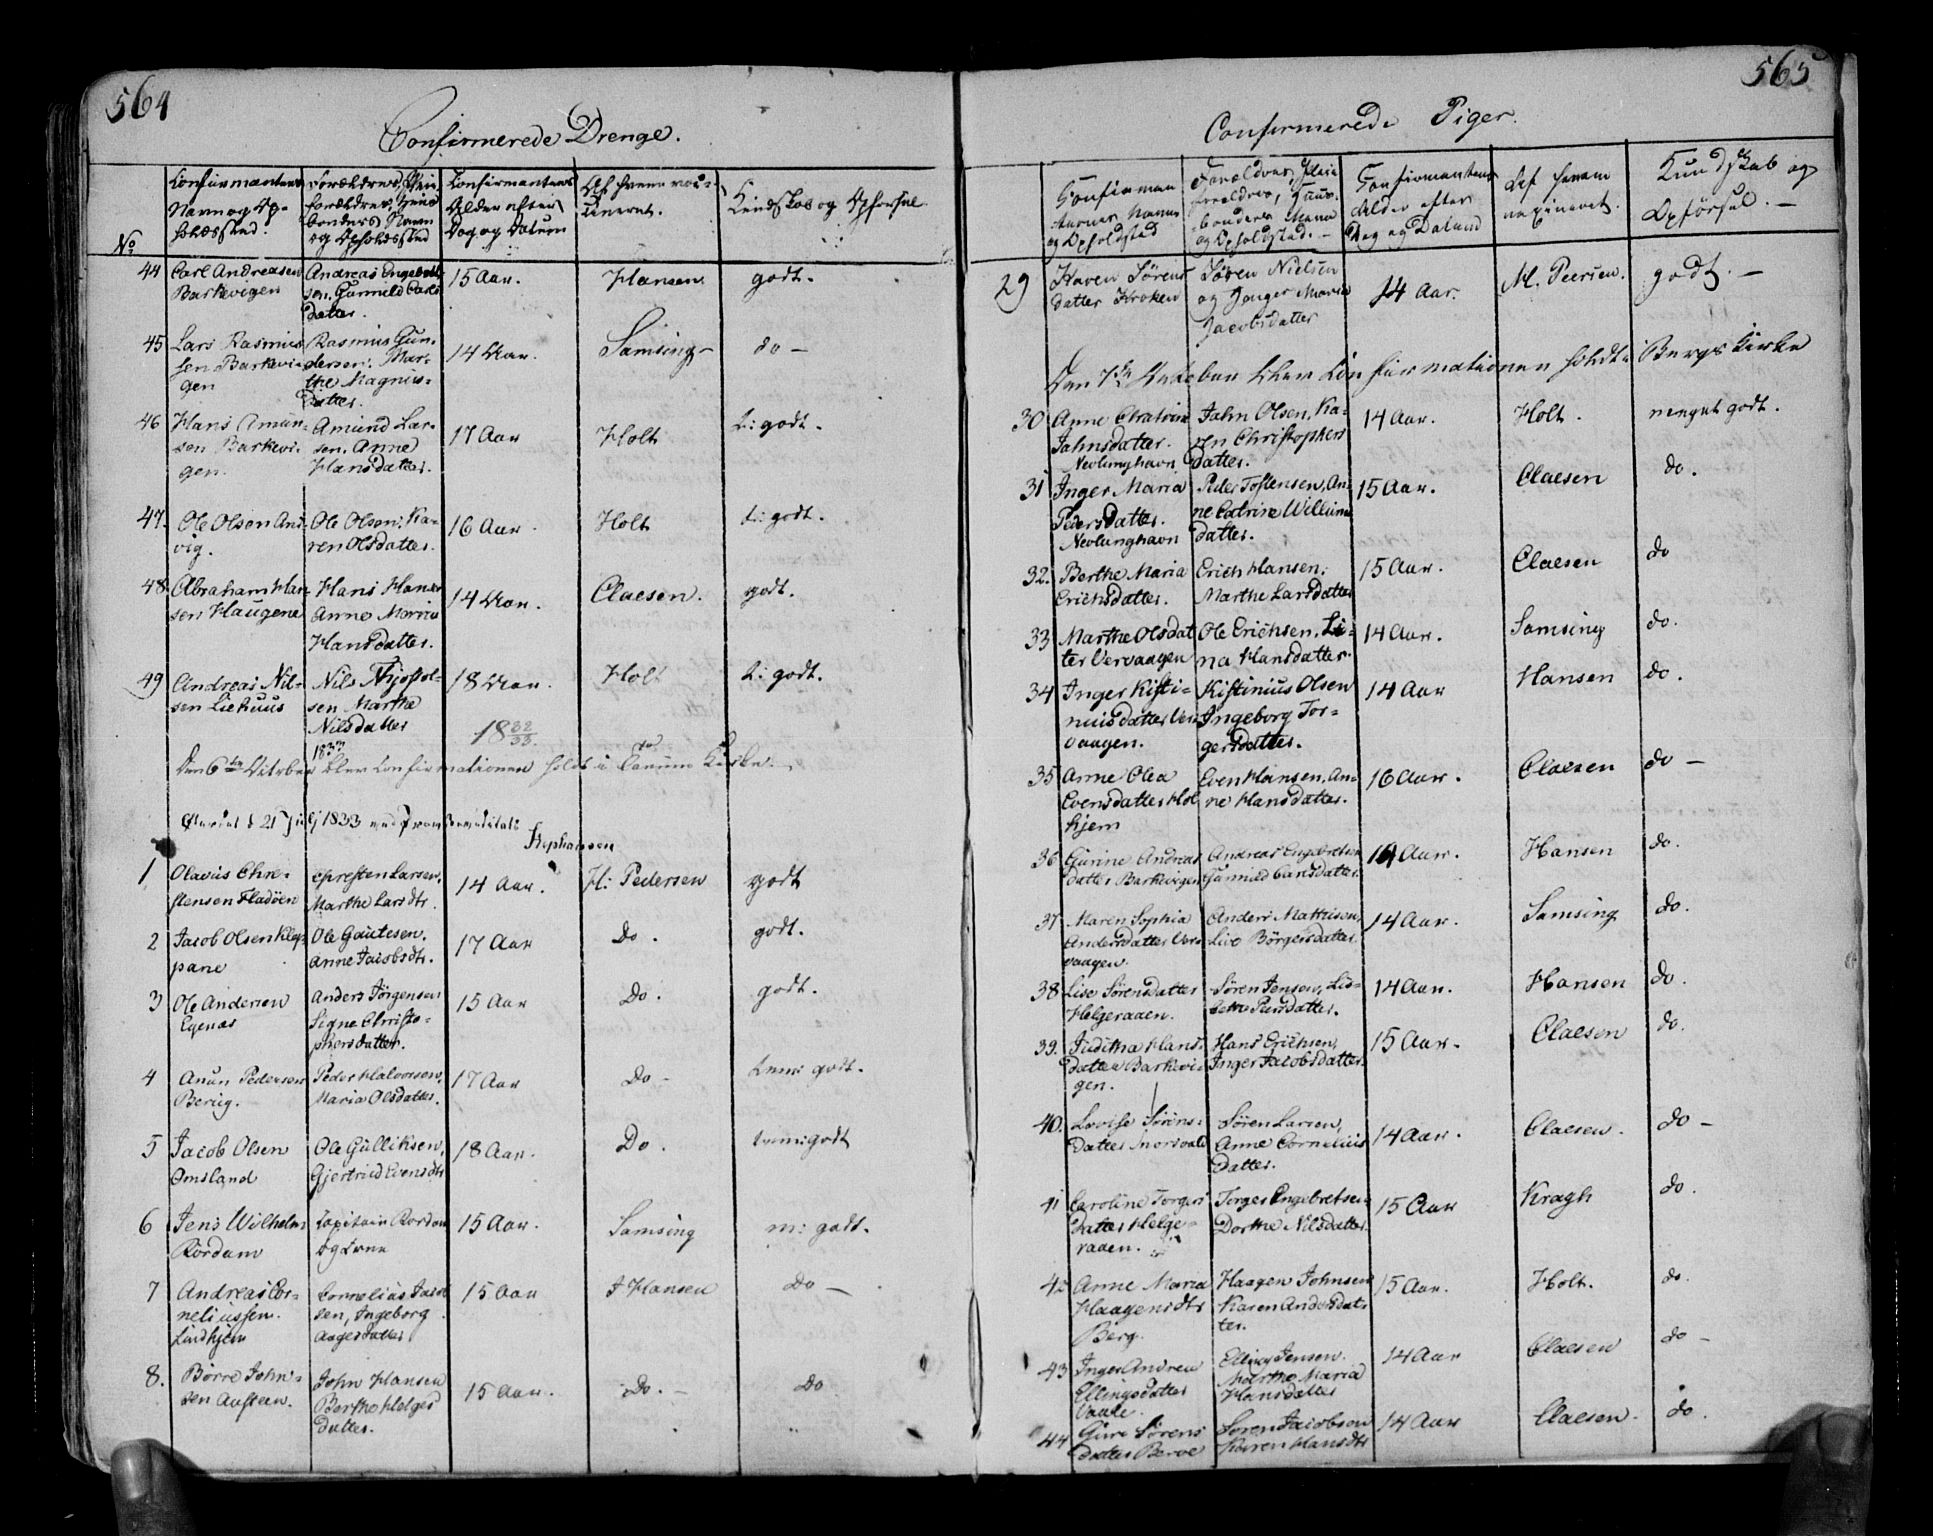 564
Confirmerede Drenge.
No
Confirmantens
Navn og Op-
holdssted.
Forældres, Plei-
forældres, Huus-
bonders Navn
og Opholdssted
Confirmantens
Alder efter
Dag og Datum
Af hvem vac-
cineret.
Kundskab og Opførsel
44
Carl Andreasen
Barkevigen
Andreas Engebret-
sen. Gunnild Carls
datter.
15 Aar.
Hansen
godt.
45
Lars Rasmus
sen Barkevi-
gen
Rasmus Gun-
dersen. Mar-
the Magnus-
datter.
14 Aar.
Samsing -
do -
46
Hans Amun-
sen Barkevi-
gen.
Amund Lar-
sen. Anne
Hansdatter.
17 Aar
Holt
t: godt.
47.
Ole Olsen And-
vig.
Ole Olsen. Ka-
ren Olsdatter.
16 Aar.
Holt
t: godt.
48.
Abraham Han
sen Haugene
Hans Hansen
Anne Maria
Hansdatter.
14 Aar.
Claesen.
godt.
49
Andreas Nil-
sen Liehuus
Nils Thjostol-
sen Marthe
Nilsdatter
18 Aar.
Holt
t: godt.
18 32/33.
1833
Den 6te October blev Confirmationen holdt i Tanum Kirke.
1833 ved Provstevisitats
Stephansen
1
Olavus Chri-
stensen Fladöen
Christen Larsen.
Marthe Larsdtr.
14 Aar.
H: Pedersen
godt
2
Jacob Olsen Klep-
pane
Ole Gautesen.
Anne Jacobsdtr.
17 Aar
Do.
godt.
3
Ole Andersen
Egenæs
Anders Jörgensen
Signe Christo-
phersdatter.
15 Aar
Do.
godt.
4
Anun Pedersen
Berug.
Peder Halvorsen.
Maria Olsdatter.
17 Aar
Do -
temi godt.
5
Jacob Olsen
Omsland
Ole Gulliksen,
Gjertrud Evensdtr
18 Aar.
Do.
temi godt
6
Jens Wilhelm
Rordam
Capitain Rordam
og Kone
15 Aar.
Samsing
m: godt.
7
Andreas Cor-
neliussen.
Lindhjem
Cornelius Jacob
sen, Ingeborg
Aagesdatter
15 Aar
J Hansen
Do -
8.
Börre John-
sen Aasteen.
John Hansen
Berthe Helges
datter.
15 Aar.
Do. -
Do
565
Confirmerede Piger.
Confirman
ternes Navne
og Opholdsted
Forældres, Pleie
forældres, Huus-
bonders Navn
og Opholdsted. -
Confirmantens
Alder efter
Dag og Datum
Af hvem
vaxineret.
Kundskab og
Opförsel. -
29
Karen Sörens
datter Kroken
Sören Nielsen
og Inger Maria
Jacobsdatter
14 Aar.
M. Peersen.
godt. -
Den 7de October blev Confirmationen holdt i Bergs Kirke
30
Anne Chatrine
Jahnsdatter.
Nevlunghavn
Jahn Olsen, Ka-
ren Christophers
datter.
14 Aar.
Holt.
meget godt.
31
Inger Maria
Pedersdatter.
Nevlunghavn
Peder Tostensen, An-
ne Catrine Willums
datter.
15 Aar.
Claesen
do.
32.
Berthe Maria
Erichsdatter.
Erich Hansen.
Marthe Larsdatter
15 Aar.
Claesen
do
33
Marthe Olsdat
ter Vervaagen
Ole Erichsen. Li-
na Hansdatter.
14 Aar.
Samsing
do.
34
Inger Kisti-
niusdatter Ver-
vaagen.
Kistinius Olsen
Ingeborg Tor-
gersdatter.
14 Aar
Hansen
do.
35
Anne Olea
Evensdatter Hol
hjem
Even Hansen, An-
ne Hansdatter.
16 Aar.
Claesen
do -
36
Gurine Andreas
datter Barkevigen
Andreas Engebretsen
Gunnild Carlsdatter.
14 Aar.
Hansen
do.
37
Maren Sophia
Andersdatter Ver-
vaagen.
Anders Mathisen,
Live Börgersdatter.
14 Aar.
Samsing
do.
38
Live Sörensdatter
Helgeraaen.
Sören Jensen, Lis-
bethe Peersdatter.
14 Aar.
Hansen
do.
39.
Juditha Hans-
datter Barkevi-
gen.
Hans Erichsen,
Inger Jacobsdatter.
15 Aar.
Claesen
do.
40.
Lovise Sörens-
datter Mörvold
Sören Larsen,
Anne Cornelius
datter.
14 Aar.
Claesen.
do -
41
Caroline Torgers
datter Helge-
raaen.
Torger Engebretsen
Dorthe Nilsdatter.
15 Aar
Kragh
do.
42
Anne Maria
Haagensdtr
Berg.
Haagen Johnsen
Karen Andersdat-
ter.
15 Aar.
Holt.
do.
43
Inger Andrea
Ellingsdatter
Vaale.
Elling Jensen.
Marthe Maria
Hansdatter
14 Aar
Claesen
do -
44
Guri Sörens
datter Berve
Sören Jacobsen
Karen Hansdtr
14 Aar
Claesen.
do.